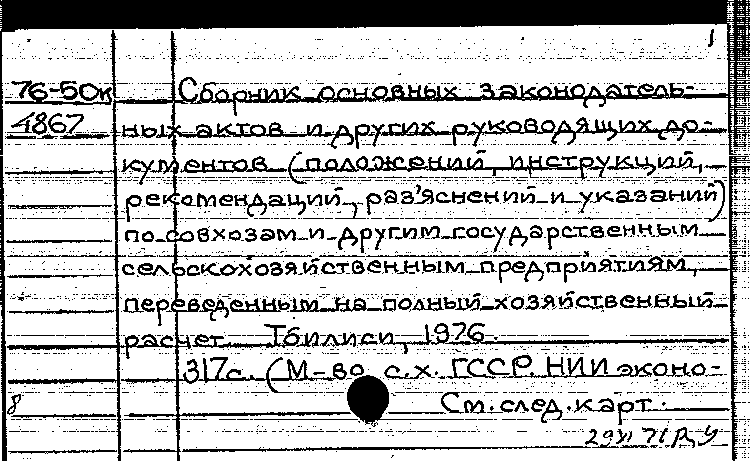 1
76-50к Сборник основных законодатель-
4867 ных актов и других руководящих до-
кументов (положений, инструкций,
рекомендаций, раз'яснений и указаний)
по совхозам и другим государственным
сельскохозяйственным предприятиям,
переведенным на полный хозяйственный
расчет. Тбилиси, 1976.
317с. (М-во с.х. ГССР. НИИ эконо-
8 См. след. карт.